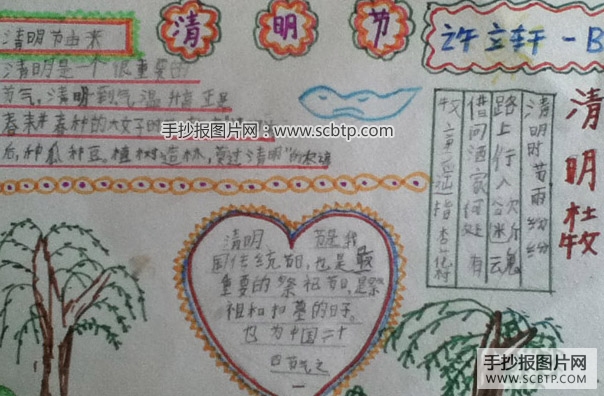 清明节由来
清明节
许立轩-B
清明是一个很重要的
节气，清明到气温升高正是
春耕春种的大好时
后，种瓜种豆。植树造林，莫过清明"的农谚
手抄报图片网：www.scbtp.com
清明 杜牧
清明时节雨纷纷
路上行人欲断魂
借问酒家何处有
牧童遥指杏花村
清明 节是我
国传统节日，也是最
重要的祭祖节日，是祭
祖和扫墓的日子。
也为中国二十
四节气之
一
手抄报图片网
WWW.SCBTP.COM